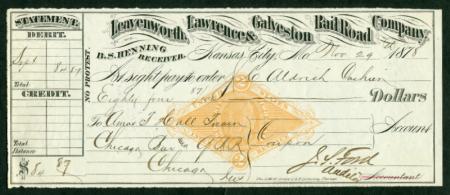 STATEMENT.
DEBIT.
Sept 84.87
Total:
CREDIT.
Total
Balance
$84 87
NO PROTEST.
Leavenworth, Lawrence & Galveston Rail Road Company,
B.S. HENNING
RECEIVER.
Kansas City, Mo Nov 29th 1875
At sight pay to order E Aldrich Cashier
Eighty four 87 Dollars
To Amos T Hall Treas Account
Chicago Coupon
Chicago
J. S. Ford
Accountant